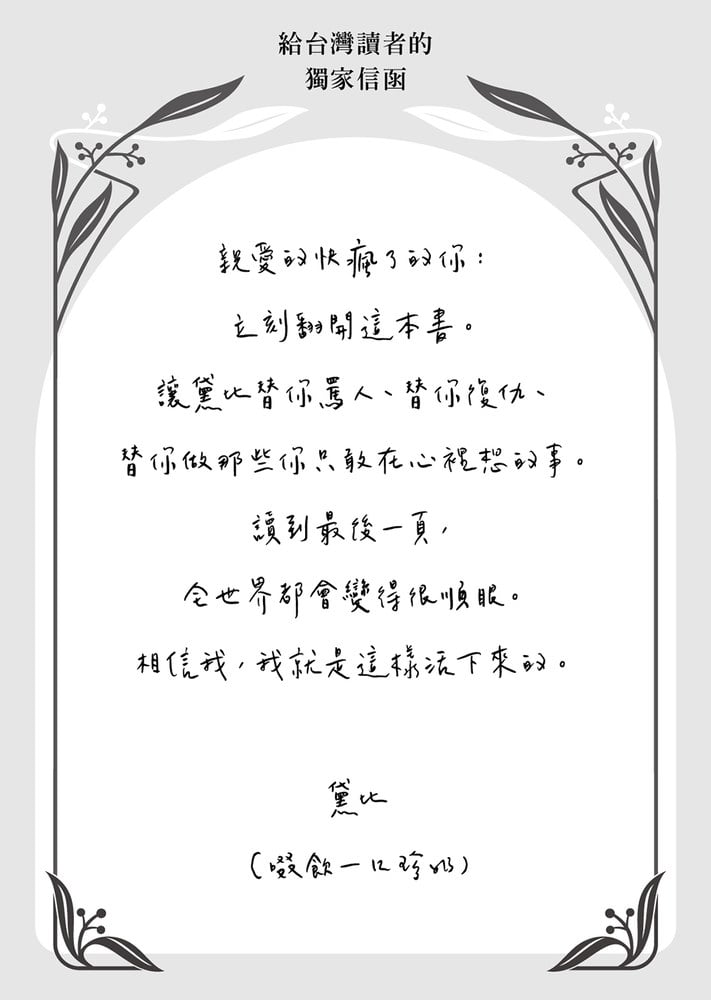 給台灣讀者的
獨家信函
親愛的快瘋了的你：
立刻翻開這本書。
讓黛比替你罵人、替你復仇、
替你做那些你只敢在心裡想的事。
讀到最後一頁，
全世界都會變得很順眼。
相信我，我就是這樣活下來的。
黛比
（啜飲一口珍奶）